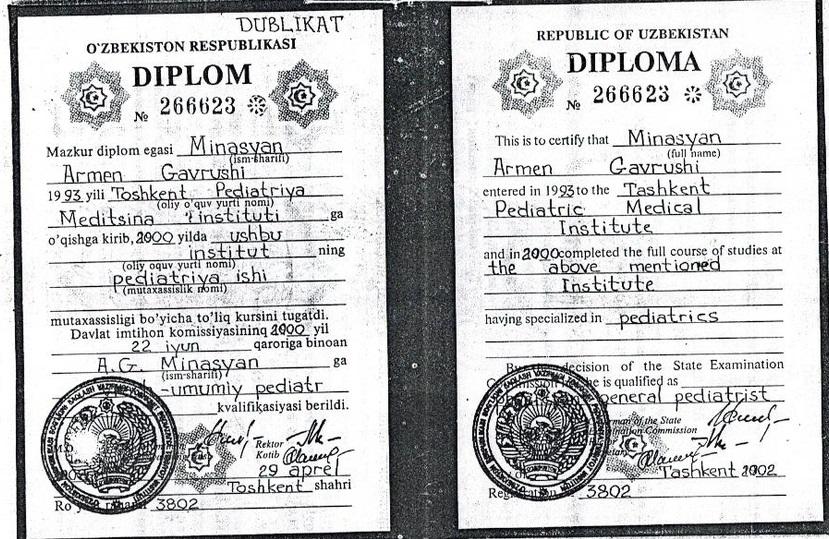 DUBLIKAT
O'ZBEKISTON RESPUBLIKASI
DIPLOM
№ 266623
Mazkur diplom egasi Minasyan
(ism-sharifi)
Armen Gavrushi
1993 yili Toshkent Pediatriya
(oliy o'quv yurti nomi)
Meditsina instituti ga
o'qishga kirib, 2000 yilda ushbu
institut ning
(oliy oquv yurti nomi)
pediatriya ishi
(mutaxassislik nomi)
mutaxassisligi bo'yicha to'liq kursini tugatdi.
Davlat imtihon komissiyasining 2000 yil
22 iyun qaroriga binoan
A.G. Minasyan ga
(ism-sharifi)
-umumiy pediatr
kvalifikasiyasi berildi.
Rektor
Kotib
29 aprel
Toshkent shahri
3802
REPUBLIC OF UZBEKISTAN
DIPLOMA
№ 266623
This is to certify that Minasyan
(full name)
Armen Gavrushi
entered in 1993 to the Tashkent
Pediatric Medical
Institute
and in 2000 completed the full course of studies at
the above mentioned
Institute
having specialized in pediatrics
decision of the State Examination
he is qualified as
general pediatrist
of the State
Commission
Tashkent 2002
3802